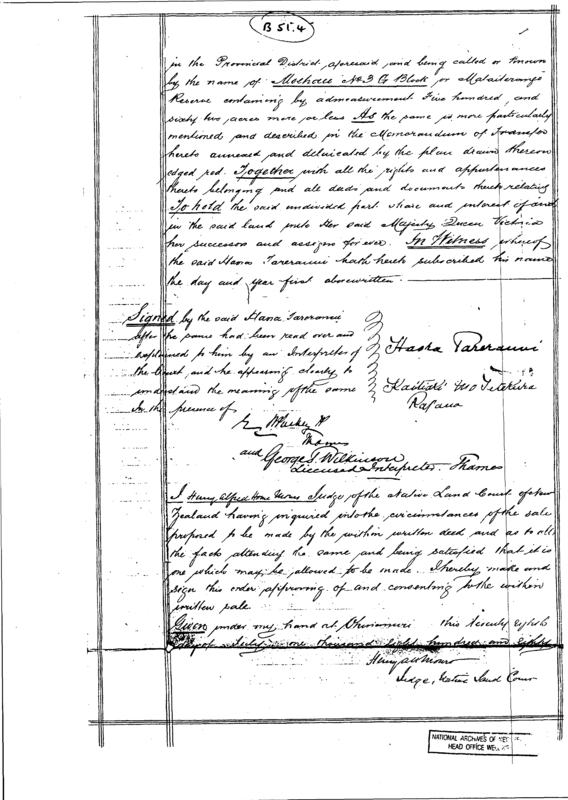 B 51.4
in the Provincial District aforesaid and being called or known
by the name of Moehau No 3 G Block or Mataiterangi
Reserve containing by admeasurement Five hundred and
sixty two acres more or less As the same is more particularly
mentioned and described in the Memorandum of Transfer
hereto annexed and delineated by the plan drawn thereon
edged red. Together with all the rights and appurtenances
thereto belonging and all deeds and documents thereto relating
To hold the said undivided part share and interest of and
in the said land unto Her said Majesty Queen Victoria
her successors and assigns for ever. In Witness whereof
the said Haora Tareranui hath hereto subscribed his name
the day and year first abovewritten.
Signed by the said Haora Tareranui
after the same had been read over and
explained to him by an Interpreter of
the Court, and he appearing clearly to
understand the meaning of the same
In the presence of
Haora Tareranui
Kaituhi mo
Thames
and George T. Wilkinson
Licensed Interpreter. Thames
I Henry Alfred Home Monro Judge of the Native Land Court of New
Zealand having inquired into the circumstances of the sale
proposed to be made by the within written deed and as to all
the facts attending the same and being satisfied that it is
one which may be allowed to be made. I hereby make and
sign this order approving of and consenting to the within
written sale
Given under my hand at Ohinemuri this twenty eighth
day of July one thousand eight hundred and eighty
Henry A H Monro
Judge, Native Land Court
NATIONAL ARCHIVES OF NEW
HEAD OFFICE